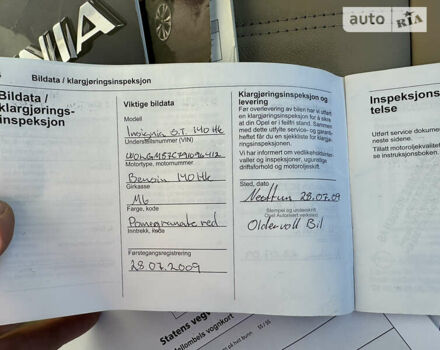 auto RIA
NIA
Bildata / klargjøringsinspeksjon
Bildata /
klargjørings-
inspeksjon
Viktige bildata
Modell
Insignia S.T. 140 Hk
Understellsnummer (VIN)
Motortype, motornummer
Bensin 140 Hk
Girkasse
M6
Farge, kode
Pomegranate red
Inntrekk, kode
Førstegangsregistrering
28.07.2009
Klargjøringsinspeksjon og
levering
Før overlevering av bilen har vi utført
en klargjøringsinspeksjon for å sikre
at din Opel er i feilfri stand. Sammen
med dette utfylte service- og garanti-
heftet får du en sjekkliste for klar-
gjøringsinspeksjonen.
Vi har informert om vedlikeholdsinter-
valler og inspeksjoner, ugunstige
driftsforhold og motoroljeskift.
Sted, dato
Nesttun 28.07.09
Stempel og underskrift
Opel Autorisert verksted
Oldervoll Bil
Inspeksjons
telse
Utført service dokume
neste sidene.
Tillatt motoroljekvalitet
se instruksjonsboken.
Statens veg
Mellombels vognkort